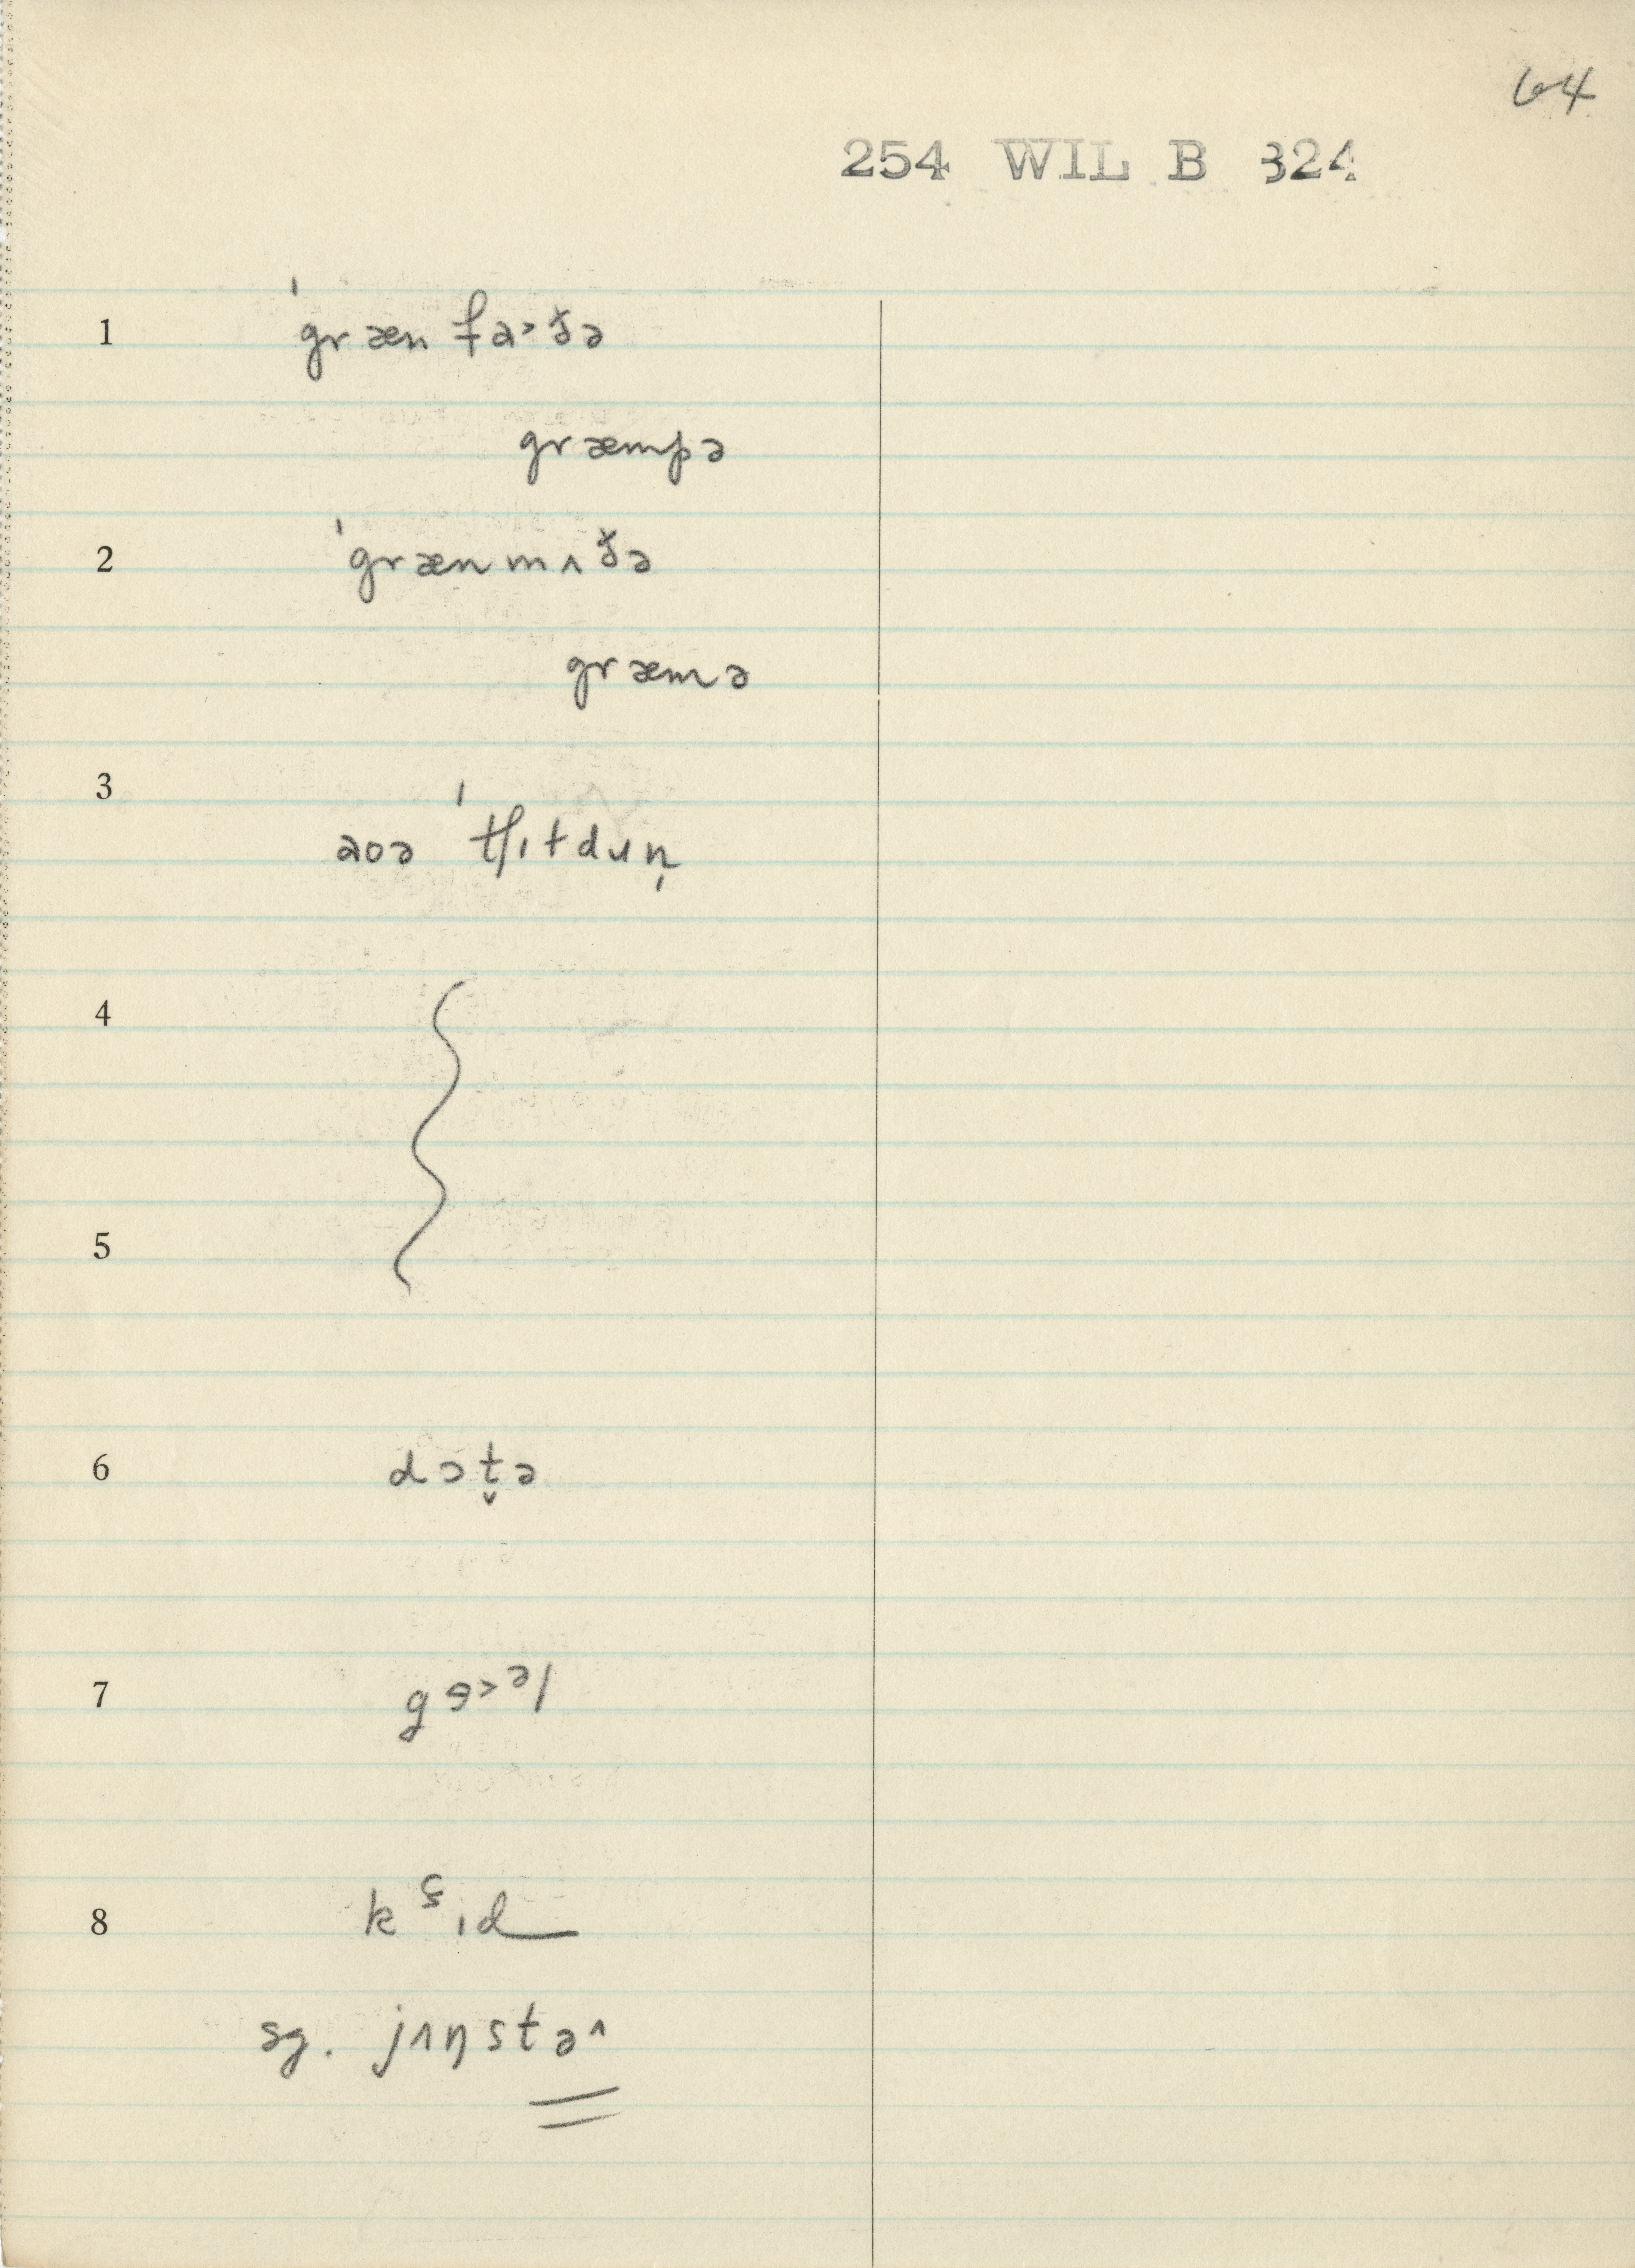 64
254 WIL B 324
1 ˈgræn fa˃ðə
græmpə
2 ˈgræn mʌðə
græmə
3 aʊə ˈtʃɪldɹən̩
4
5
6 dɔt̬ə
7 gɘ˃ᵊl
8 kᶝɪd
sg. jʌŋstə^